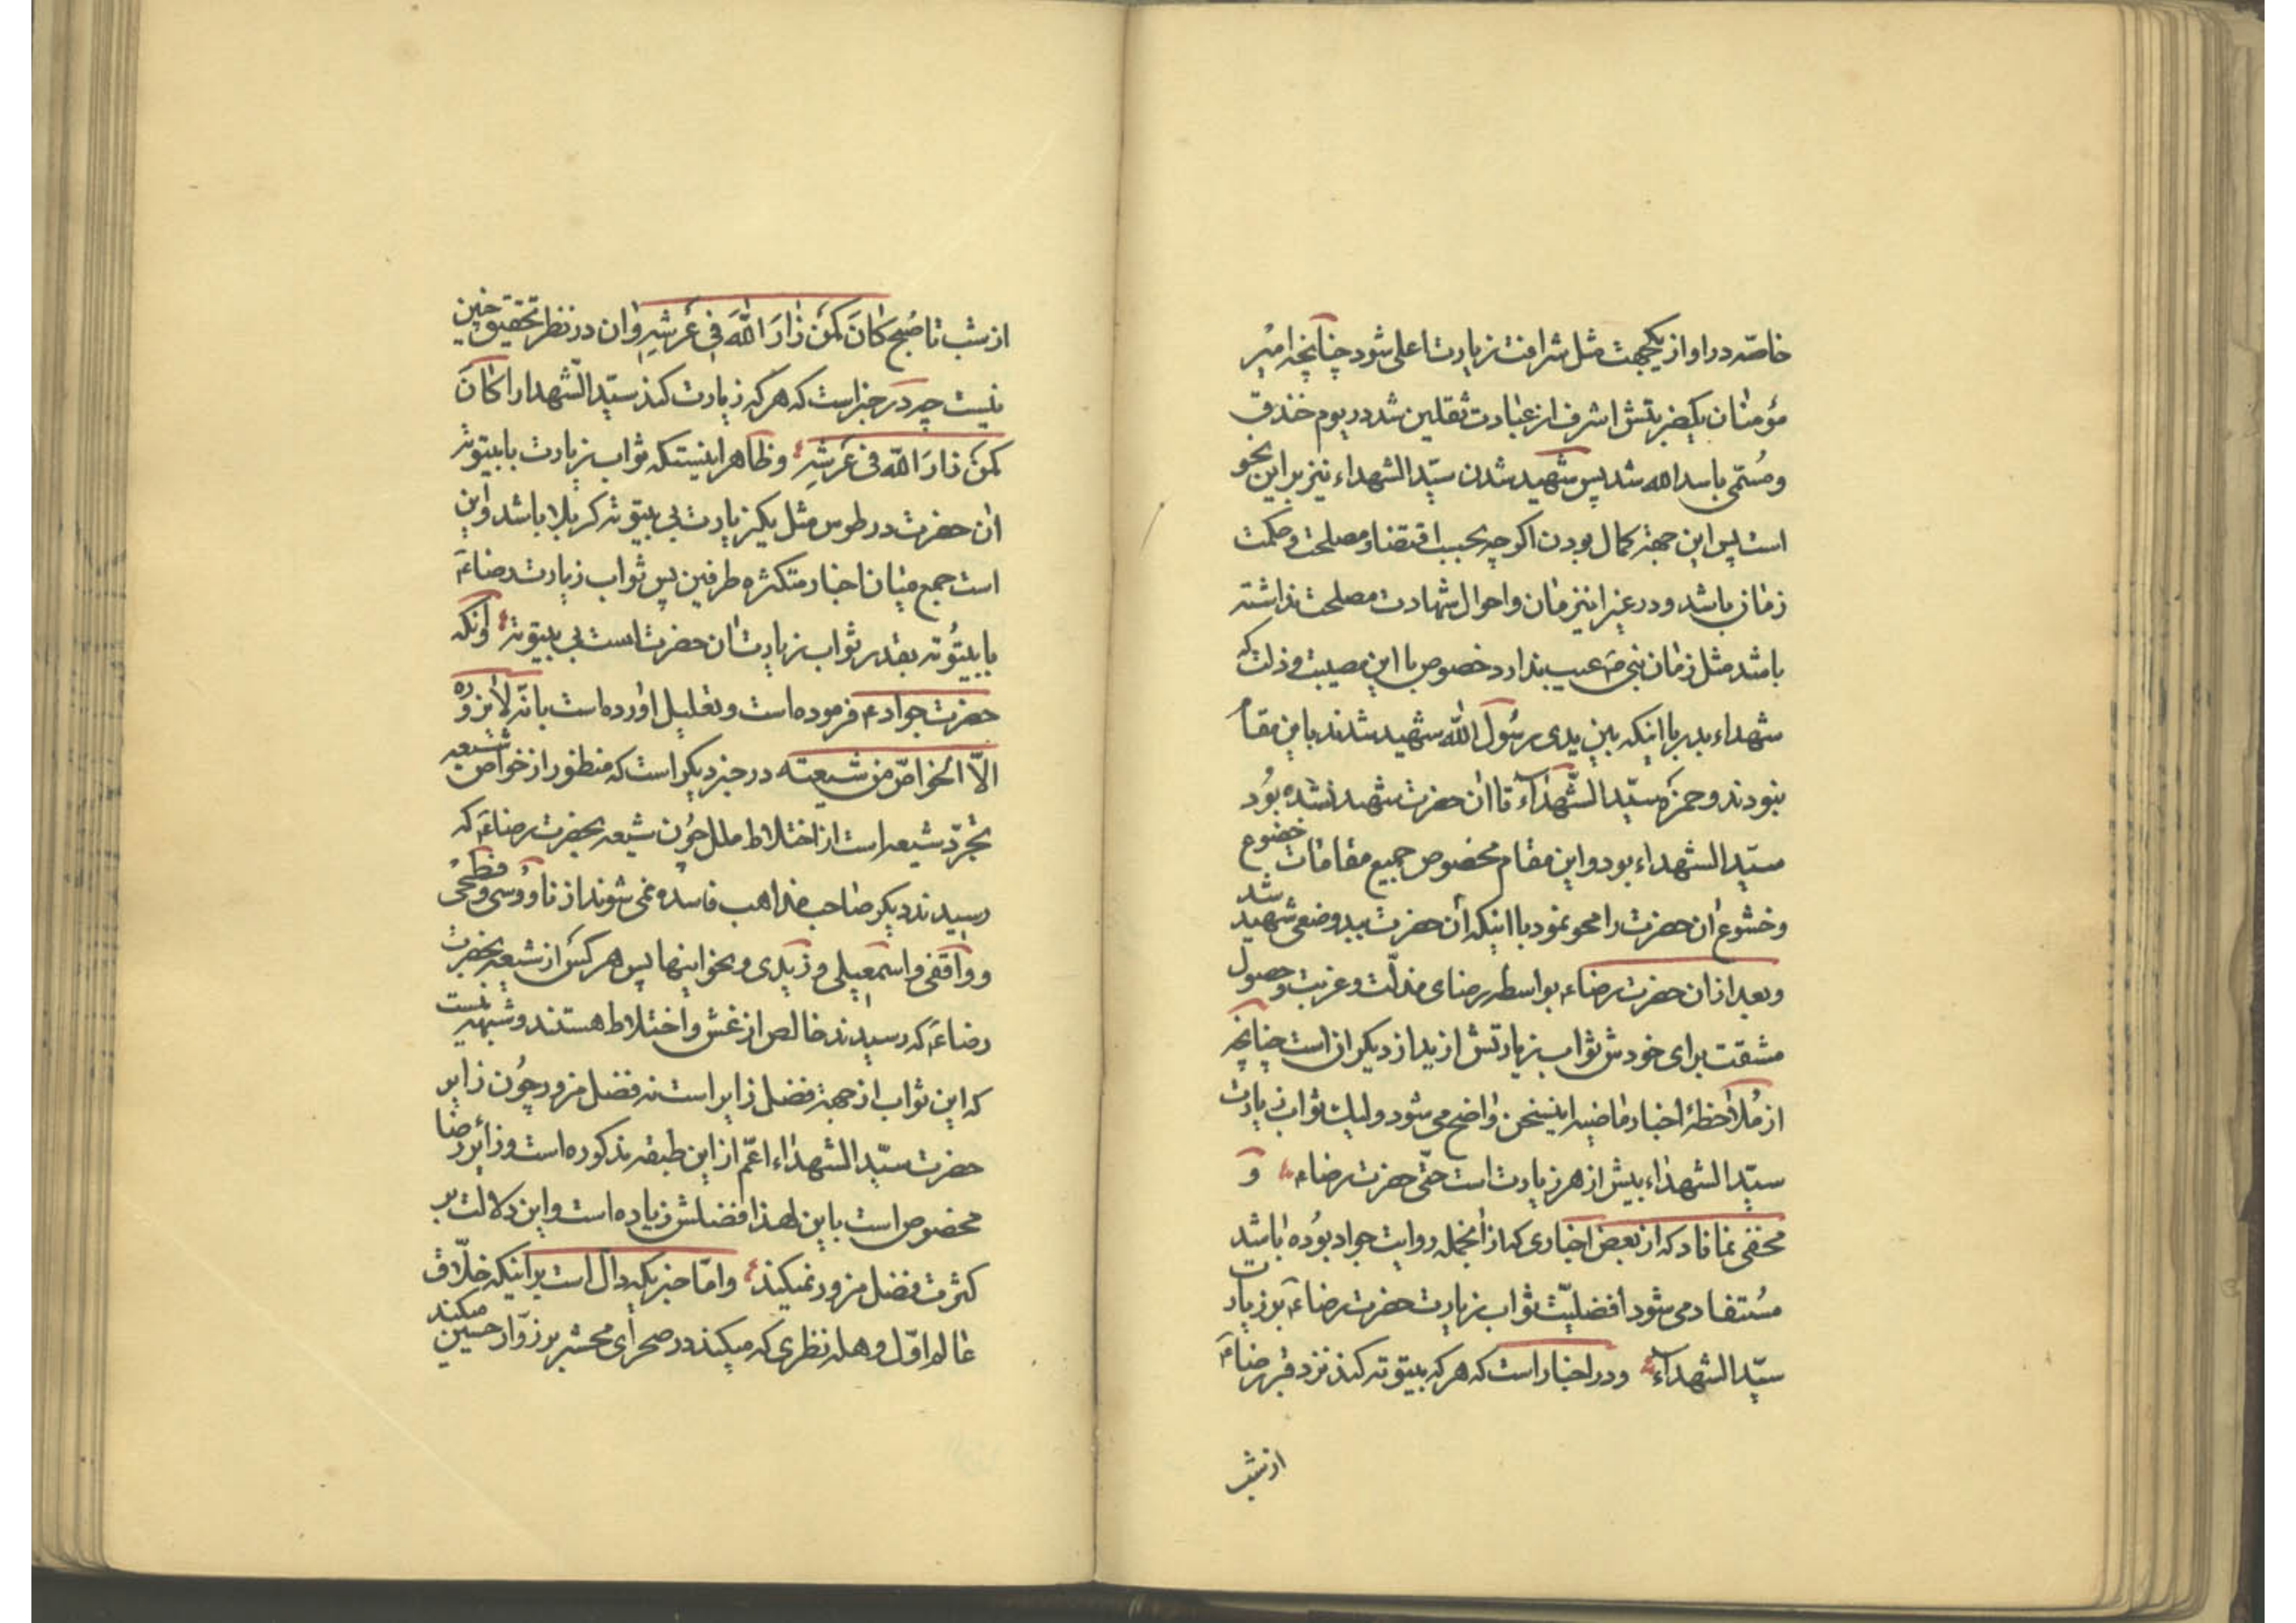 خاصّه در او از یکجهت مثل شرافت زیارت اعلی شود چنانچه امیر
مؤمنان یکضربتش اشرف از عبادت ثقلین شد در یوم خندق
ومُسمّی باسدالله شد پس شهید شدن سیّد الشهداء نیز بر این نحو
است پس این جهة کمال بودن اکرچه بحسب اقتضاء ومصلحت وحکمت
زمان باشد ودر غیر اینزمان واحوال شهادت مصلحت نداشته
باشد مثل زمان نبی صَ عیب ندارد خصوص با این مصیبت وذلت که
شهداء بدر با اینکه بین یدی رسُول الله شهید شدند باین مقام
نبودند وحمزه سیّد الشّهداء تا ان حضرت شهید نشده بوُد
سیّد الشهداء بود واین مقام مخصوص جمیع مقامات خضوع
وخشوع ان حضرت را محو نمود با اینکه ان حضرت ببد وضعی شهید شد
وبعد از ان حضرت رضاء بواسطه رضای مذلّت وغربت وحصول
مشقت برای خودش ثواب زیارتش ازید از دیکران است چنانچه
از مُلاحظهٔ اخبار ماضیه اینسخن واضح می شود ولیک ثواب زیارت
سیّد الشهداء بیش از هر زیارت است حتّی حضرت رضاء و
مخفی نماناد که از بعض اخباری که از انجمله روایت جواد بوُده باشد
مسُتفاد می شود افضلیّت ثواب زیارت حضرت رضاءَ بر زیارت
سیّد الشهداء ودر اخبار است که هر که بیتوته کند نزد قبر رضاءَ
از شب
از شب تا صُبح کانَ کَمَن زارَ اللهَ فی عَرشهِ وان در نظر تحقیق چنین
نیست چه در خبر است که هر که زیارت کند سیّد الشّهدا را کانَ
کمَن زارَ اللهَ فی عَرشهِ وظاهر اینستکه ثواب زیارت با بیتوته
ان حضرت در طوس مثل یک زیارت بی بیتوته کربلا باشد واین
است جمع میان اخبار متکثره طرفین پس ثواب زیارت رضاءَ
با بیتوُته بقدر ثواب زیارت ان حضرت است بی بیتوته وانکه
حضرت جواد ع فرموده است وتعلیل اورده است بانّه لا یزوره
الّا الخواصّ من شیعته در خبر دیکر است که منظور از خواص شیعه
تجرّد شیعه است از اختلاط ملل چوُن شیعه بحضرت رضاءَ که
رسیدند دیکر صاحب مذاهب فاسده نمی شوند از ناووسی وفطحی
وواقفی واسمعیلی وزیدی ونحو اینها پس هر کس از شیعه بحضرت
رضاءَ که رسیدند خالص از غش واختلاط هستند وشبهه نیست
که این ثواب از جهة فضل زایر است نه فضل مزور چوُن زایر
حضرت سیّد الشهداء اعّم از این طبقه مذکوره است وزائر رضا
مخصوص است باین لهذا فضلش زیاده است واین دلالت بر
کثرت فضل مزور نمیکند وامّا خبریکه دالّ است بر اینکه خلّاق
عالم اوّل وهله نظری که میکند در صحرای محشر بر زوّار حسین میکند